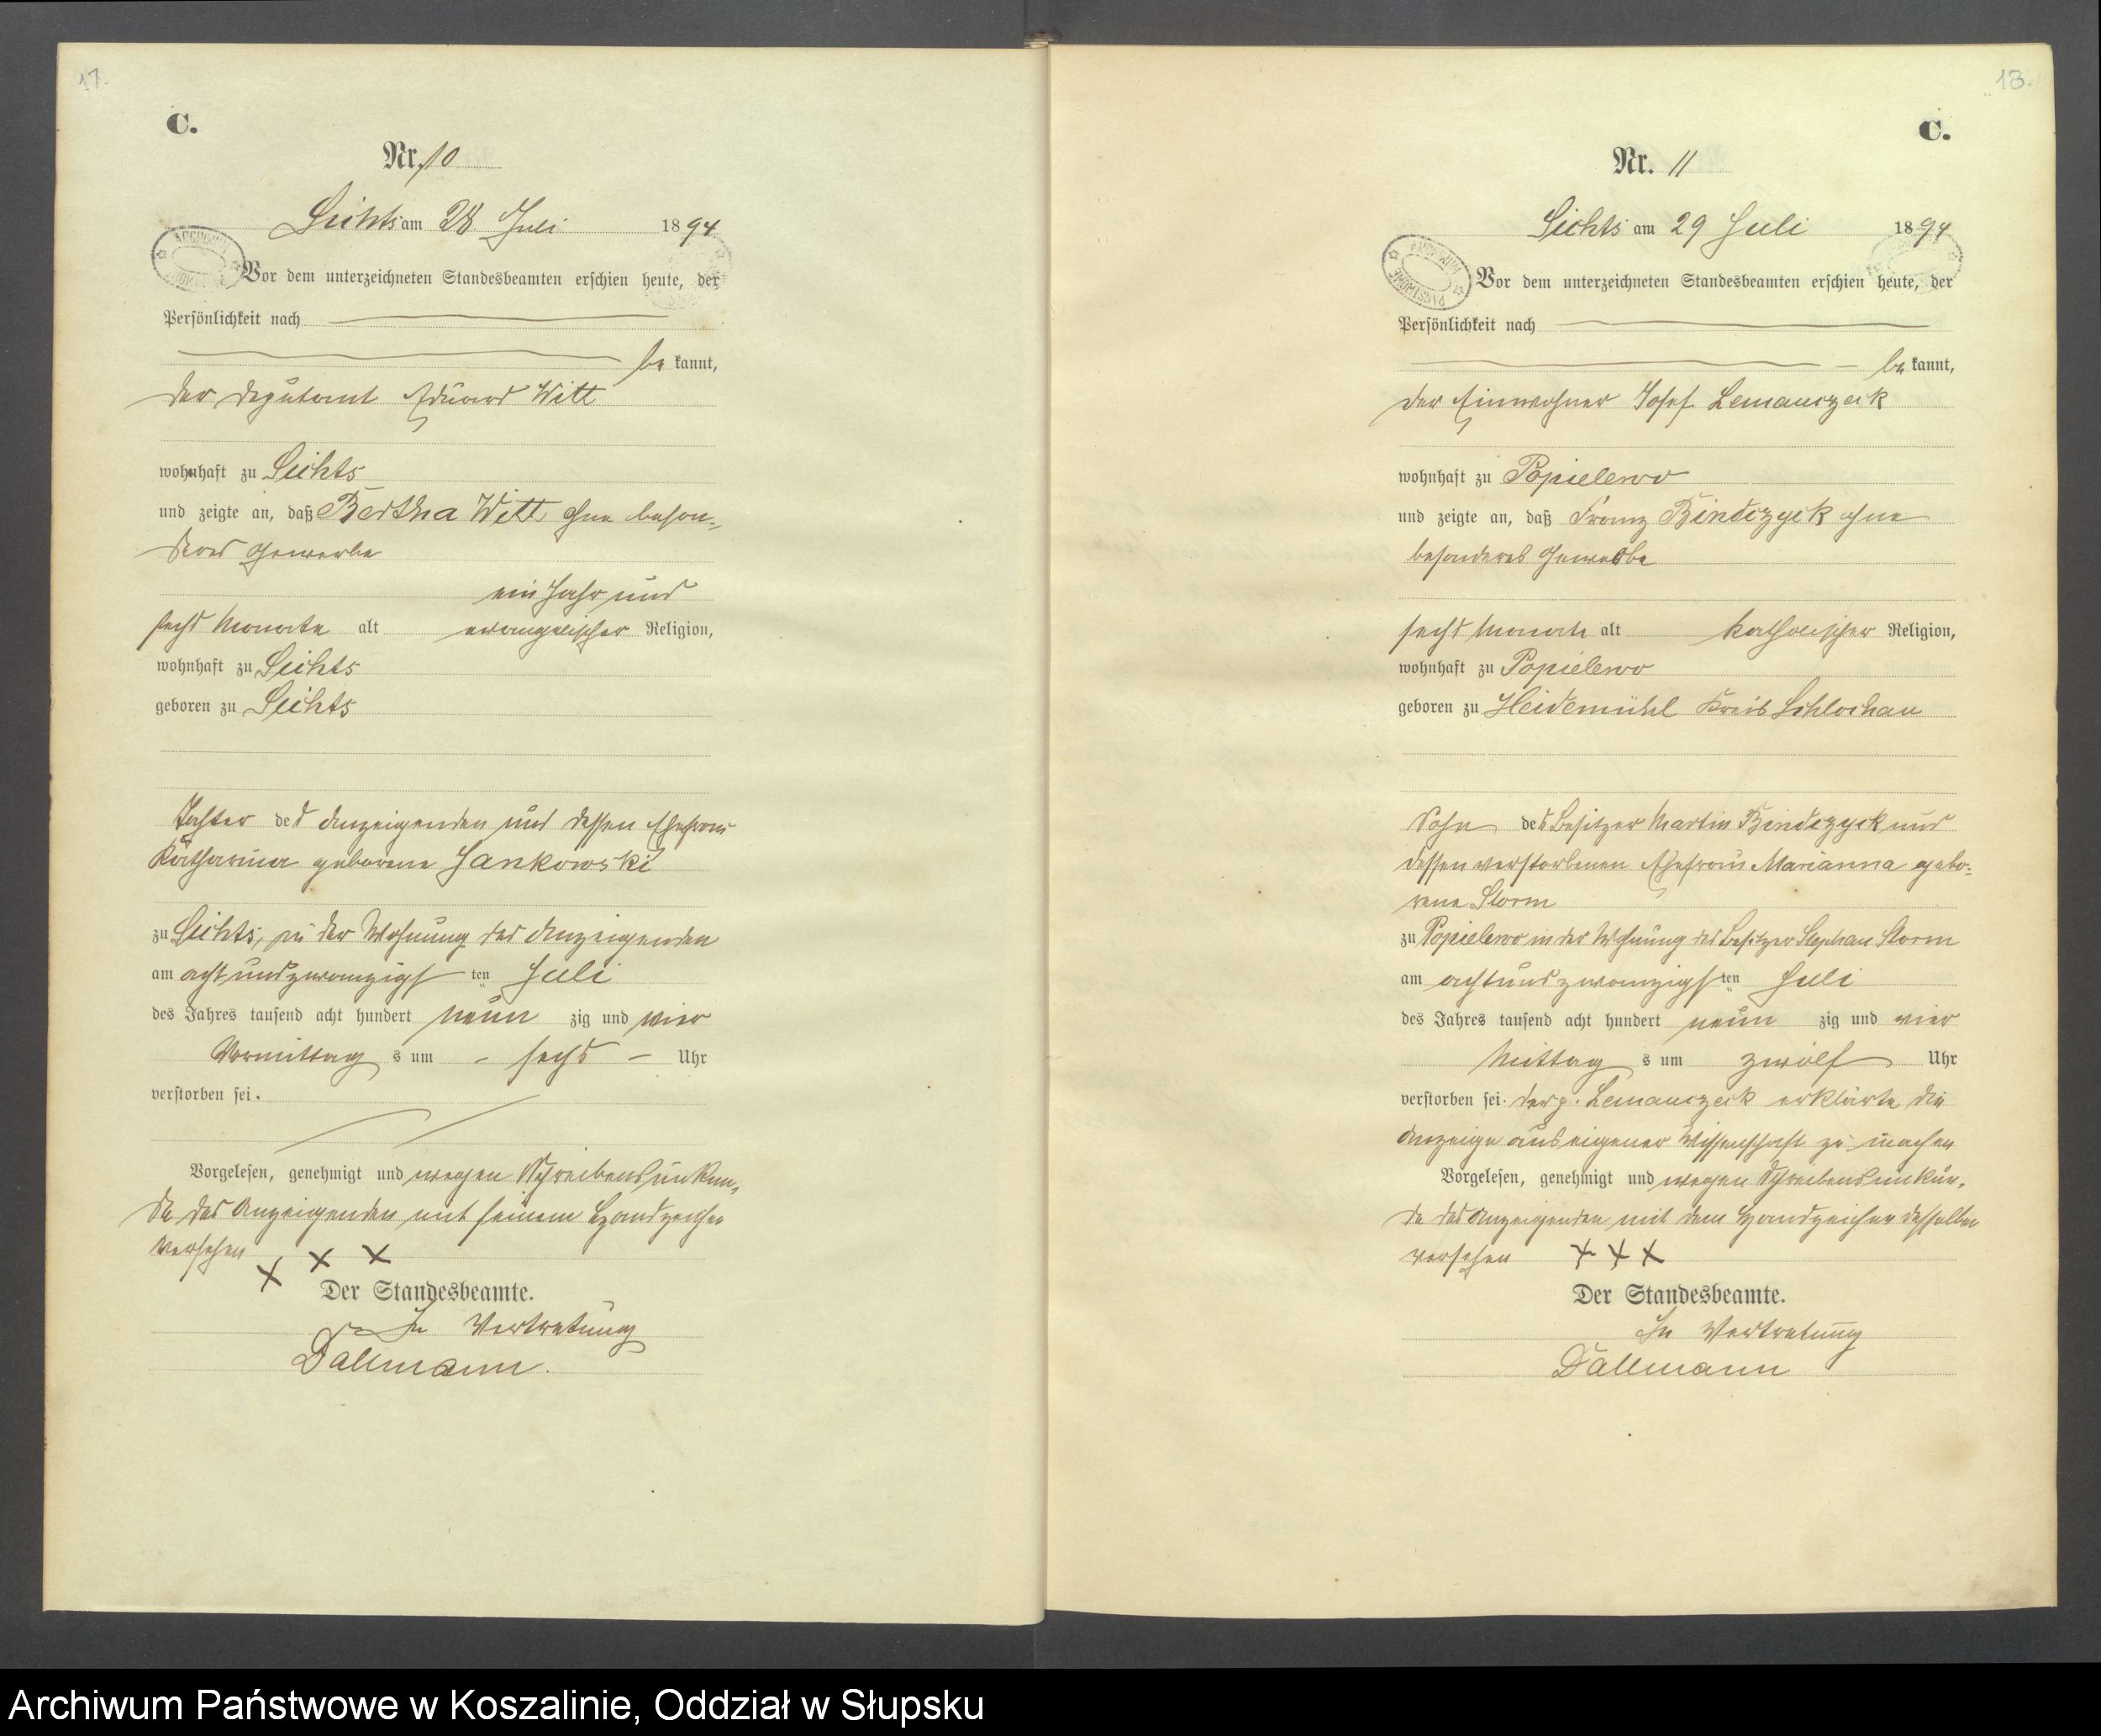 17.
C.
Nr. 10
Lichts am 28 Juli 1894
Vor dem unterzeichneten Standesbeamten erschien heute, der
Persönlichkeit nach
be kannt,
der Deputant Eduard Witt
wohnhaft zu Lichts
und zeigte an, daß Bertha Witt, ohne beson-
deres Gewerbe
ein Jahr und
sechs Monate alt evangelischer Religion,
wohnhaft zu Lichts
geboren zu Lichts
Tochter des Anzeigenden und dessen Ehefrau
Katharina geborene Jankowski
zu Lichts, in der Wohnung des Anzeigenden
am acht und zwanzigs ten Juli
des Jahres tausend acht hundert neun zig und vier
Vormittag s um sechs Uhr
verstorben sei.
Vorgelesen, genehmigt und wegen Schreibensunkun-
de des Anzeigenden mit seinem Handzeichen
versehen
x x x
Der Standesbeamte.
In Vertretung
Dallmann.
13.
C.
Nr. 11
Lichts am 29 Juli 1894
Vor dem unterzeichneten Standesbeamten erschien heute, der
Persönlichkeit nach
be kannt,
der Einwohner Josef Lemanczeck
wohnhaft zu Popielewo
und zeigte an, daß Franz Bindczyck ohne
besonderes Gewerbe
sechs Monate alt katholischer Religion,
wohnhaft zu Popielewo
geboren zu Heidemühl Kreis Schlochau
Sohn des Besitzer Martin Bindczyck und
dessen verstorbenen Ehefrau Marianna gebo-
rene Storm
zu Popielewo in der Wohnung des Besitzer Stephan Storm
am acht und zwanzigs ten Juli
des Jahres tausend acht hundert neun zig und vier
Mittag s um zwölf Uhr
verstorben sei. Der p. Lemanczeck erklärte die
Anzeige aus eigener Wissenschaft zu machen
Vorgelesen, genehmigt und wegen Schreibensunkun-
de des Anzeigenden mit dem Handzeichen desselben
versehen x x x
Der Standesbeamte.
In Vertretung
Dallmann
Archiwum Państwowe w Koszalinie, Oddział w Słupsku